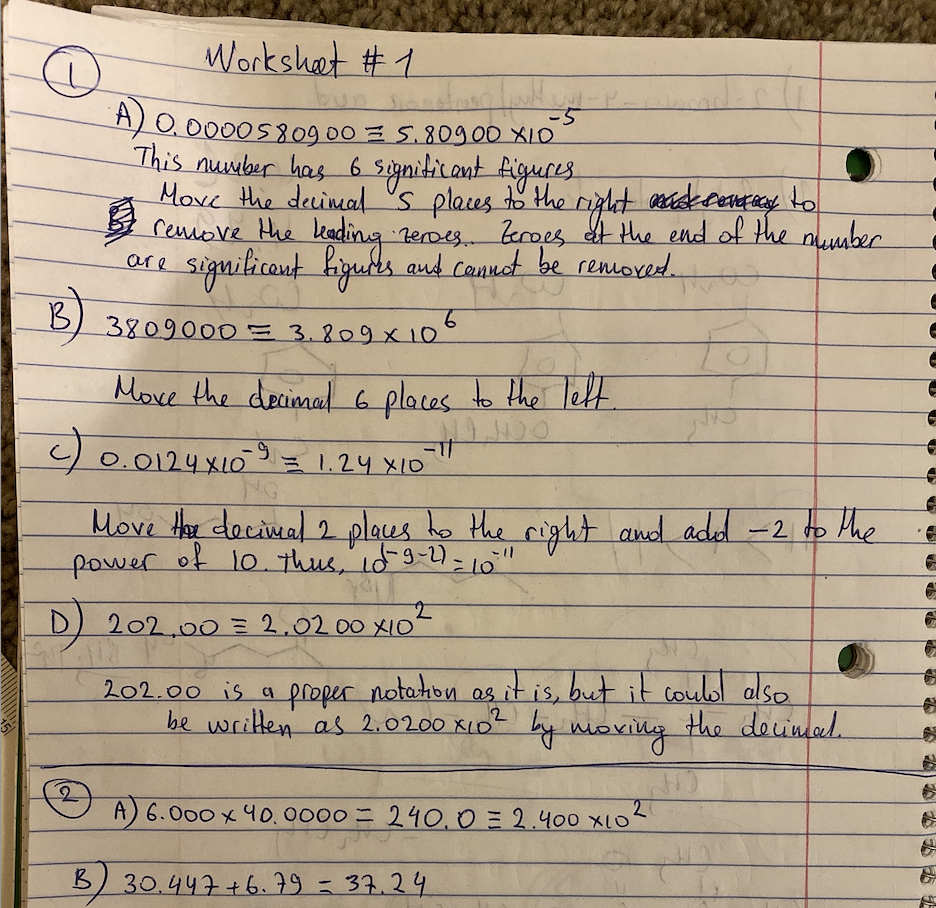 ① Worksheet # 1
A) 0.0000580900 ≡ 5.80900 x10⁻⁵
This number has 6 significant figures
Move the decimal 5 places to the right to
remove the leading zeroes. Zeroes at the end of the number
are significant figures and cannot be removed.
B) 3809000 ≡ 3.809 x 10⁶
Move the decimal 6 places to the left.
C) 0.0124 x10⁻⁹ ≡ 1.24 x10⁻¹¹
Move the decimal 2 places to the right and add -2 to the
power of 10. Thus, 10⁽⁻⁹⁻²⁾ = 10⁻¹¹
D) 202.00 ≡ 2.0200 x10²
202.00 is a proper notation as it is, but it could also
be written as 2.0200 x10² by moving the decimal.
② A) 6.000 x 40.0000 = 240.0 ≡ 2.400 x10²
B) 30.447 + 6.79 = 37.24